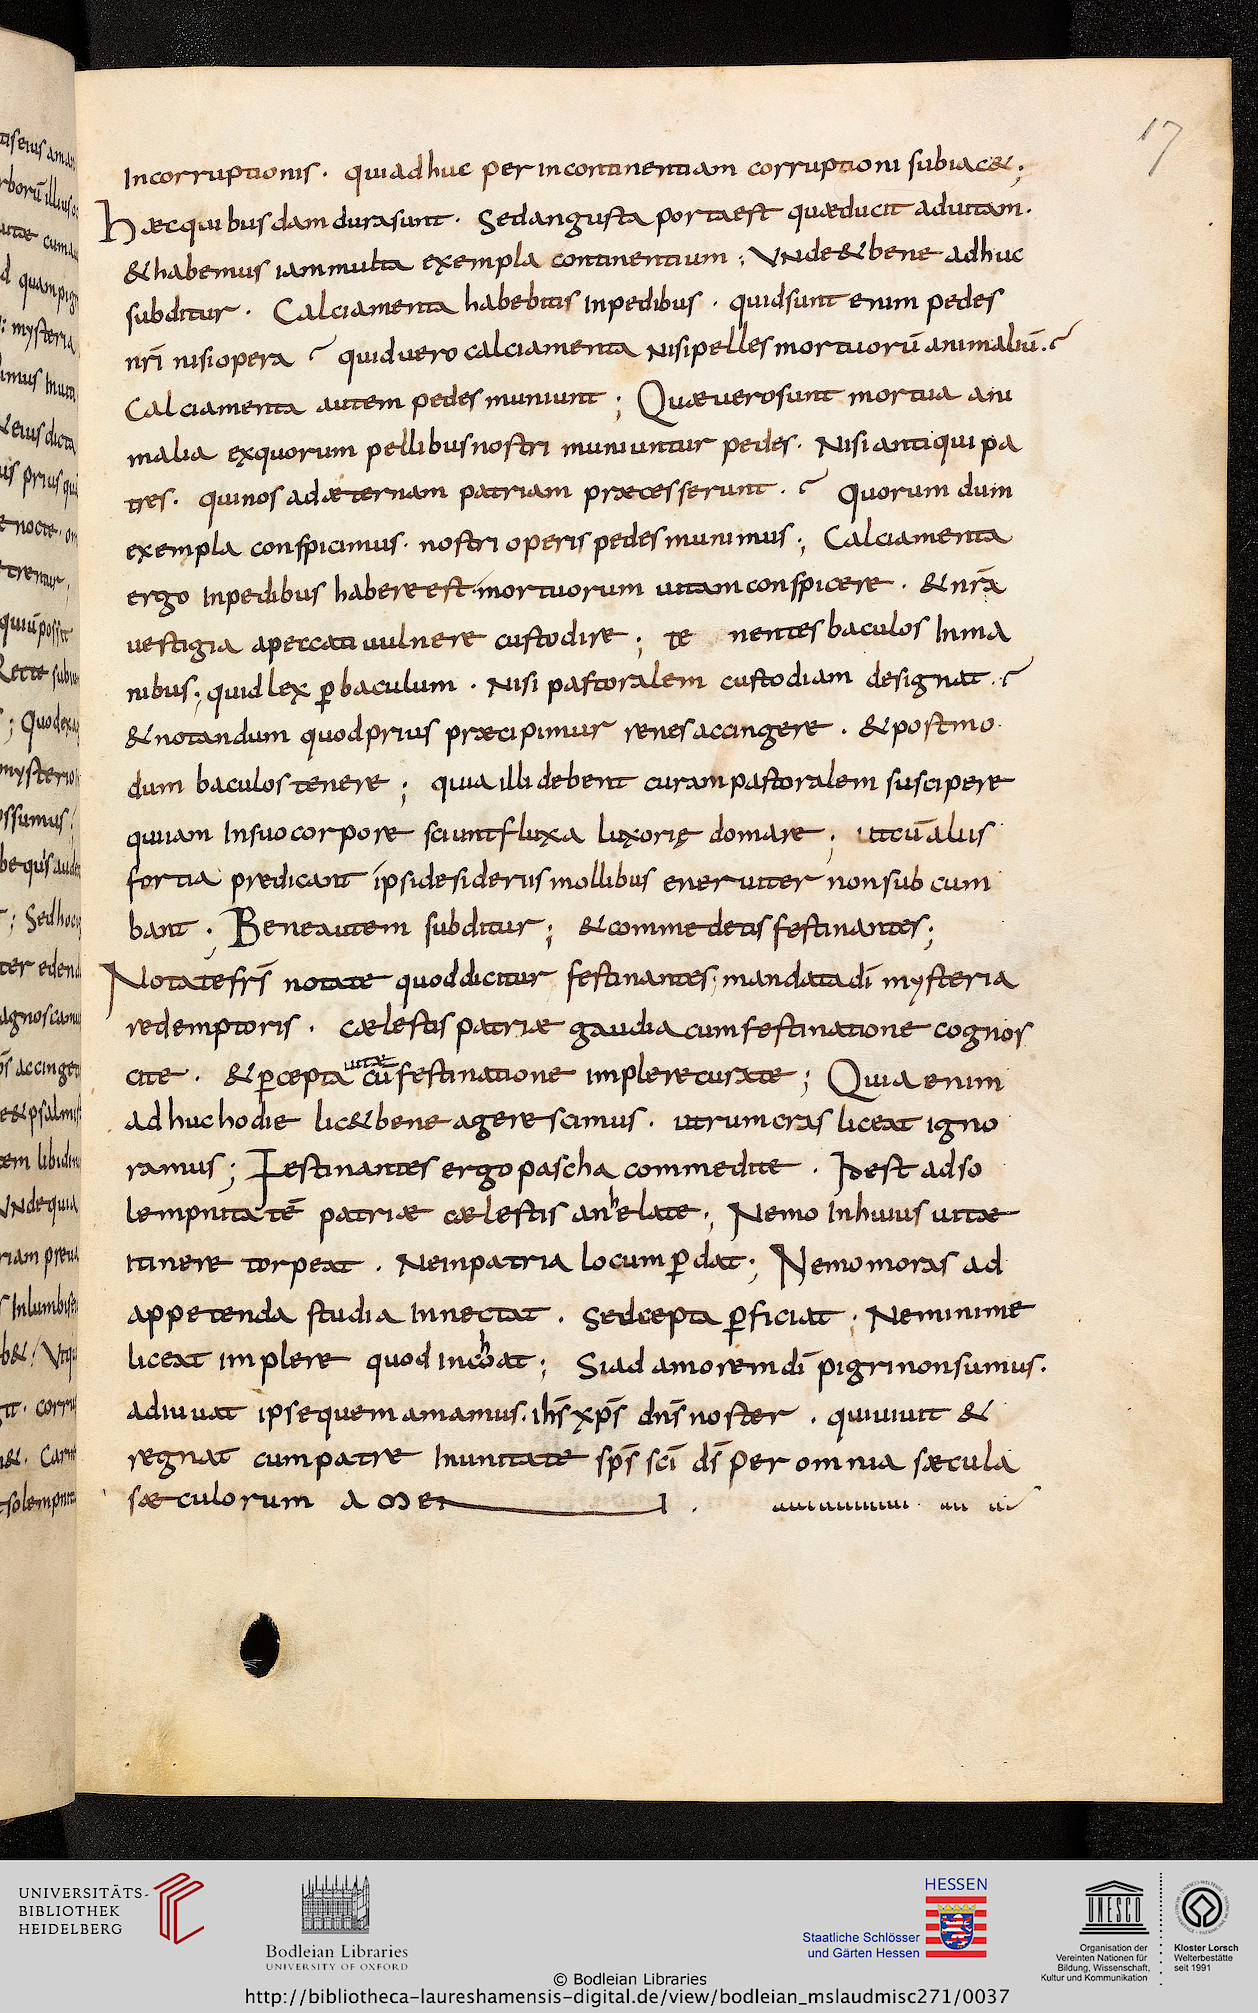 17
Incorruptionis. qui adhuc per incontinentiam corruptioni subiac&;
Hæc quibusdam dura sunt. Sed angusta porta est quæ ducit ad uitam.
& habemus iam multa exempla continentium; Vnde & bene adhuc
subditur. Calciamenta habebitis inpedibus. quid sunt enim pedes
nr̄i nisi opera? quid uero calciamenta Nisi pelles mortuorū animaliū.?
Calciamenta autem pedes muniunt; Quæ uero sunt mortua ani
malia ex quorum pellibus nostri muniuntur pedes. Nisi antiqui pa
tres. qui nos ad æternam patriam præcesserunt.? Quorum dum
exempla conspicimus. nostri operis pedes munimus; Calciamenta
ergo Inpedibus habere est mortuorum uitam conspicere. & nr̄a
uestigia apeccati uulnere custodire; te nentes baculos Inma
nibus; quid lex ꝑ baculum. Nisi pastoralem custodiam designat.?
& notandum quod prius præcipimur renes accingere. & postmo
dum baculos tenere; quia illi debent curam pastoralem suscipere
qui iam Insuo corpore sciunt fluxa luxorię domare; ut cū aliis
fortia predicant ipsi desideriis mollibus eneruiter non sub cum
bant. Bene autem subditur; & commedetis festinantes;
Notate fr̄s notate quod dicitur festinantes; mandata dī mysteria
redemptoris. cælestis patriæ gaudia cum festinatione cognos
cite. & ꝑcepta uitæ cū festinatione implere curate; Quia enim
adhuc hodie lic& bene agere scimus. utrum cras liceat igno
ramus; Festinantes ergo pascha commedite. Id est ad so
lempnitatē patriæ cælestis anhelate; Nemo Inhuius uitæ
itinere torpeat. Ne in patria locum ꝑdat; Nemo moras ad
appetenda studia Innectat. Sed cepta ꝑficiat. Ne minime
liceat implere quod inchoat; Si ad amorem dī pigri non sumus.
adiuuat ipse quem amamus. ih̄s xp̄s dn̄s noster. qui uiuit &
regnat cum patre Inunitate sp̄s sc̄i ds̄ Per omnia sæcula
sæculorum amen.
UNIVERSITÄTS-
BIBLIOTHEK
HEIDELBERG
Bodleian Libraries
UNIVERSITY OF OXFORD
HESSEN
Staatliche Schlösser
und Gärten Hessen
UNESCO
Organisation der
Vereinten Nationen für
Bildung, Wissenschaft,
Kultur und Kommunikation
Kloster Lorsch
Welterbestätte
seit 1991
© Bodleian Libraries
http://bibliotheca-laureshamensis-digital.de/view/bodleian_mslaudmisc271/0037